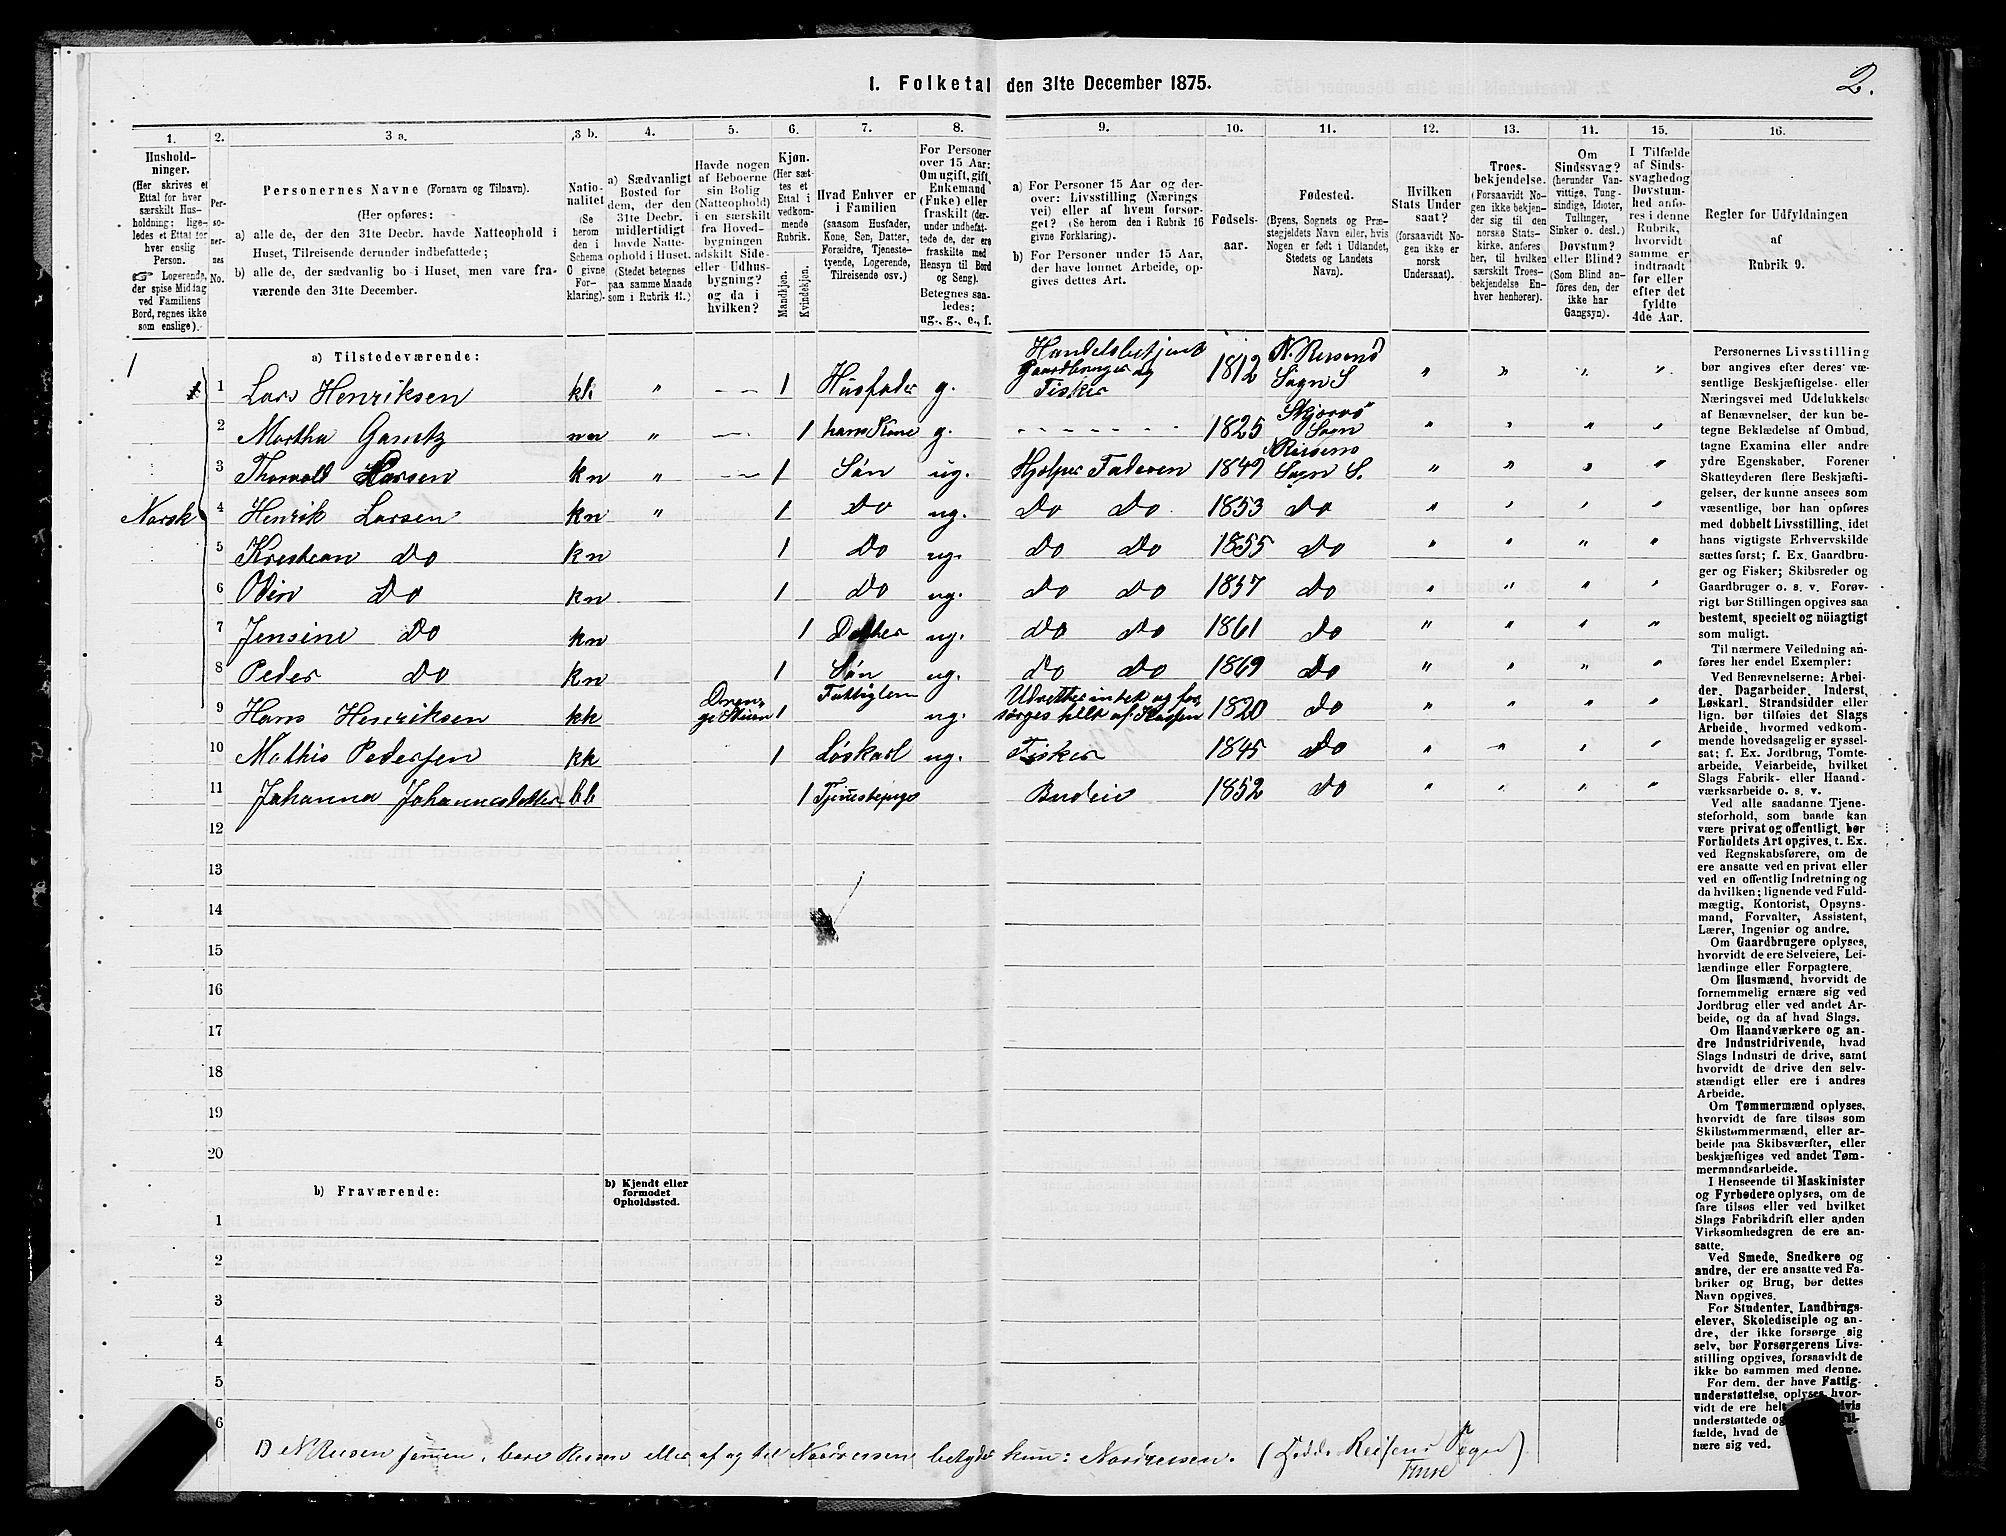 I. Folketal den 31te December 1875.
2.
1.
Hushold-
ninger.
(Her skrives et
Ettal for hver
særskilt Hus-
holdning; lige-
ledes et Ettal for
hver enslig
Person.
Logerende,
der spise Middag
ved Familiens
Bord, regnes ikke
som enslige).
2.
Per-
so-
ner-
nes
No.
3 a.
Personernes Navne (Fornavn og Tilnavn).
(Her opføres:
a) alle de, der den 31te Decbr. havde Natteophold i
Huset, Tilreisende derunder indbefattede;
b) alle de, der sædvanlig bo i Huset, men vare fra-
værende den 31te December.
3 b.
Natio-
nalitet
(Se
herom
den i
Schema
O givne
For-
klaring).
4.
a) Sædvanligt
Bosted for
dem, der den
31te Decbr.
midlertidigt
havde Natte-
ophold i Huset.
(Stedet betegnes
paa samme Maade
som i Rubrik 11.)
5.
Havde nogen
af Beboerne
sin Bolig
(Natteophold)
i en særskilt
fra Hoved-
bygningen
adskilt Side-
eller Udhus-
bygning?
og da i
hvilken?
6.
Kjøn.
(Her sæt-
tes et
Ettal i
vedkom-
mende
Rubrik.
Mandkjøn.
Kvindekjøn.
7.
Hvad Enhver er
i Familien
(saasom Husfader,
Kone, Søn, Datter,
Forældre, Tjeneste-
tyende, Logerende,
Tilreisende osv.)
8.
For Personer
over 15 Aar:
Om ugift, gift,
Enkemand
(Enke) eller
fraskilt (der-
under indbefat-
tede de, der ere
fraskilte med
Hensyn til Bord
og Seng).
Betegnes saa-
ledes:
ug., g., e., f.
9.
a) For Personer 15 Aar og der-
over: Livsstilling (Nærings
vei) eller af hvem forsør-
get? (Se herom den i Rubrik 16
givne Forklaring).
b) For Personer under 15 Aar,
der have lønnet Arbeide, op-
gives dettes Art.
10.
Fødsels-
aar.
11.
Fødested.
(Byens, Sognets og Præ-
stegjeldets Navn eller, hvis
Nogen er født i Udlandet,
Stedets og Landets
Navn).
12.
Hvilken
Stats Under
saat?
(forsaavidt No-
gen ikke er
norsk
Undersaat).
13.
Troes-
bekjendelse.
(Forsaavidt No-
gen ikke bekjen-
der sig til den
norske Stats-
kirke, anføres
her, til hvilken
særskilt Troes-
bekjendelse En-
hver henhører).
14.
Om
Sindssvag?
(herunder Van-
vittige, Tung-
sindige, Idioter,
Tullinger,
Sinker o. desl.)
Døvstum?
eller Blind?
(Som Blind an-
føres den, der
ikke har
Gangsyn).
15.
I Tilfælde
af Sinds-
svaghed og
Døvstum-
hed anfø-
res i denne
Rubrik,
hvorvidt
samme er
indtraadt
før eller
efter det
fyldte
4de Aar.
16.
Regler for Udfyldningen
af
Rubrik 9.
a) Tilstedeværende:
1 1 Lars Henriksen kk " — 1 Husfader g. Handelsbetjent Gaardbruger og Fisker 1812 N. Reisens 1) Sogn S " " " "
2 Martha Gamst nn " — 1 hans Kone g. - - - - - - - 1825 Skjervø Sogn " " " "
3 Thorvald Larsen kn " — 1 Søn ug. Hjelper Faderen 1849 Reisens Sogn S. " " " "
Norsk 4 Henrik Larsen kn " 1 Do ug. Do Do 1853 Do " " " "
5 Kristian Do kn 1 Do ug. Do Do 1855 Do " " " "
6 Odin Do kn 1 Do ug. Do Do 1857 Do " " " "
7 Jensine Do kn 1 Datter ug. Do Do 1861 Do " " " "
8 Peder Do kn 1 Søn ug. Do Do 1869 Do " " " "
9 Hans Henriksen kk Dren- ge Stuen 1 Fattiglem ug. Udretter intet og for- sørges helt af Kassen 1820 Do " " " "
10 Mathis Pedersen kk 1 Løskarl ug. Fisker 1845 Do " " " "
11 Johanna Johannesdatter bb 1 Tjenestepige Budeie 1852 Do " " " "
12
13
14
15
16
17
18
19
20
b) Fraværende:
b) Kjendt eller
formodet
Opholdssted.
1
2
3
4
5
6
1) N Reisen Sognen, bare Reisen eller af og til Nordreisen betyder kun: Nordreisen. (Hedd. Reisens Sogn)
Personernes Livsstilling
bør angives efter deres væ-
sentlige Beskjæftigelse eller
Næringsvei med Udelukkelse
af Benævnelser, der kun be-
tegne Beklædelse af Ombud,
tagne Examina eller andre
ydre Egenskaber. Forener
Skatteyderen flere Beskjæfti-
gelser, der kunne ansees som
væsentlige, bør han opføres
med dobbelt Livsstilling, idet
hans vigtigste Erhvervskilde
sættes først; f. Ex. Gaardbru-
ger og Fisker; Skibsreder og
Gaardbruger o. s. v. Forøv-
rigt bør Stillingen opgives saa
bestemt, specielt og nöiagtigt
som muligt.
Til nærmere Veiledning an-
føres her endel Exempler:
Ved Benævnelserne: Arbei-
der, Dagarbeider, Inderst,
Løskarl, Strandsidder eller
lign. bør tilføies det Slags
Arbeide, hvormed vedkom-
mende hovedsagelig er syssel-
sat; f. Ex. Jordbrug, Tomte-
arbeide, Veiarbeide, hvilket
Slags Fabrik- eller Haand-
værksarbeide o. s. v.
Ved alle saadanne Tjene-
steforhold, som baade kan
være privat og offentligt, bør
Forholdets Art opgives, t. Ex.
ved Regnskabsførere, om de
ere ansatte ved en privat eller
ved en offentlig Indretning og
da hvilken; lignende ved Fuld-
mægtig, Kontorist, Opsyns-
mand, Forvalter, Assistent,
Lærer, Ingeniør og andre.
Om Gaardbrugere oplyses,
hvorvidt de ere Selveiere, Lei-
lændinge eller Forpagtere.
Om Husmænd, hvorvidt de
fornemmelig ernære sig ved
Jordbrug eller ved andet Ar-
beide, og da af hvad Slags.
Om Haandværkere og an-
dre Industridrivende, hvad
Slags Industri de drive, samt
hvorvidt de drive den selv-
stændigt eller ere i andres
Arbeide.
Om Tømmermænd oplyses,
hvorvidt de fare tilsøs som
Skibstømmermænd, eller ar-
beide paa Skibsværfter, eller
beskjæftiges ved andet Tøm-
mermandsarbeide.
I Henseende til Maskinister
og Fyrbødere oplyses, om de
fare tilsøs eller ved hvilket
Slags Fabrikdrift eller anden
Virksomhedsgren de ere an-
satte.
Ved Smede, Snedkere og
andre, der ere ansatte ved Fa-
briker og Brug, bør dettes
Navn opgives.
For Studenter, Landbrugs-
elever, Skoledisciple og an-
dre, der ikke forsørge sig
selv, bør Forsørgerens Livs-
stilling opgives, forsaavidt de
ikke bo sammen med denne.
For dem, der have Fattig-
understøttelse, oplyses, hvor-
vidt de ere helt
understøttede og
fælde, hvad de
nære sig ved.